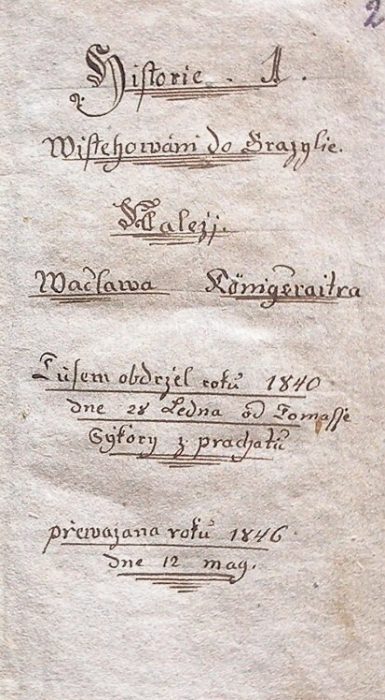 2
Historie. 1.
Wistěhowáni do Brazylie.
Nálezj.
Wacława Königsraitra
Tusem obdržel roků 1840
dne 28 Ledna od Tomasse
Sýkory z prachatů
přewazana roků 1846.
dne 12 mag.